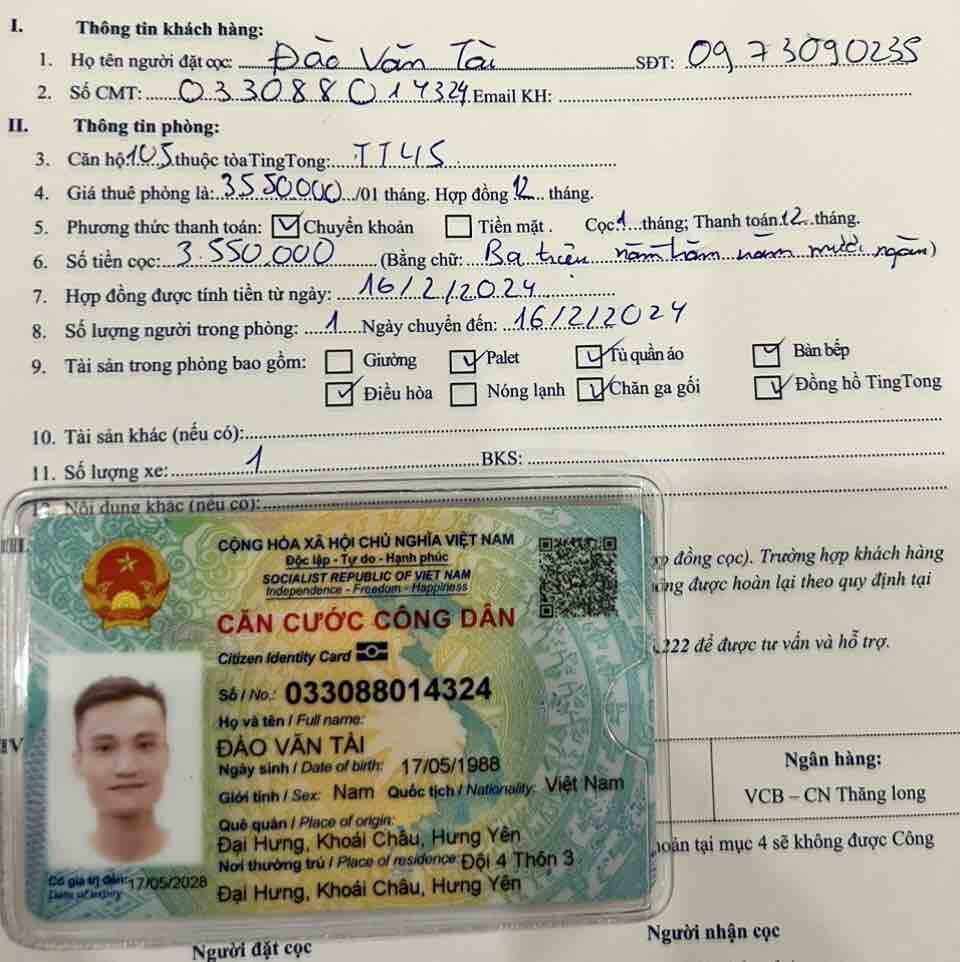 I. Thông tin khách hàng:
1. Họ tên người đặt cọc: Đào Văn Tài SĐT: 0973090235
2. Số CMT: 033088014324 Email KH:
II. Thông tin phòng:
3. Căn hộ 105 thuộc tòa TingTong: TT45
4. Giá thuê phòng là: 3550000 /01 tháng. Hợp đồng 12 tháng.
5. Phương thức thanh toán: Chuyển khoản Tiền mặt . Cọc 1 tháng; Thanh toán 2 tháng.
6. Số tiền cọc: 3.550.000 (Bằng chữ: Ba triệu năm trăm năm mươi ngàn)
7. Hợp đồng được tính tiền từ ngày: 16/2/2024
8. Số lượng người trong phòng: 1 Ngày chuyển đến: 16/2/2024
9. Tài sản trong phòng bao gồm: Giường Palet Tủ quần áo Bàn bếp
Điều hòa Nóng lạnh Chăn ga gối Đồng hồ TingTong
10. Tài sản khác (nếu có):
11. Số lượng xe: 1 BKS:
12. Nội dung khác (nếu có):
CỘNG HÒA XÃ HỘI CHỦ NGHĨA VIỆT NAM
Độc lập - Tự do - Hạnh phúc
SOCIALIST REPUBLIC OF VIET NAM
Independence - Freedom - Happiness
CĂN CƯỚC CÔNG DÂN
Citizen Identity Card
Số / No.: 033088014324
Họ và tên / Full name:
ĐÀO VĂN TÀI
Ngày sinh / Date of birth: 17/05/1988
Giới tính / Sex: Nam Quốc tịch / Nationality: Việt Nam
Quê quán / Place of origin:
Đại Hưng, Khoái Châu, Hưng Yên
Nơi thường trú / Place of residence: Đội 4 Thôn 3
Đại Hưng, Khoái Châu, Hưng Yên
Có giá trị đến: 17/05/2028
Date of expiry
đồng cọc). Trường hợp khách hàng
được hoàn lại theo quy định tại
.222 để được tư vấn và hỗ trợ.
IV
Ngân hàng:
VCB – CN Thăng long
tại mục 4 sẽ không được Công
Người đặt cọc Người nhận cọc